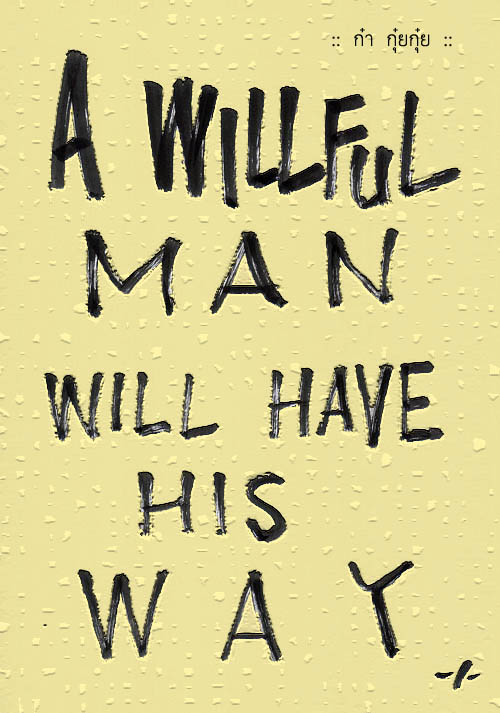 :: ก๋า กุ๋ยกุ๋ย ::
A WILLFUL
MAN
WILL HAVE
HIS
WAY